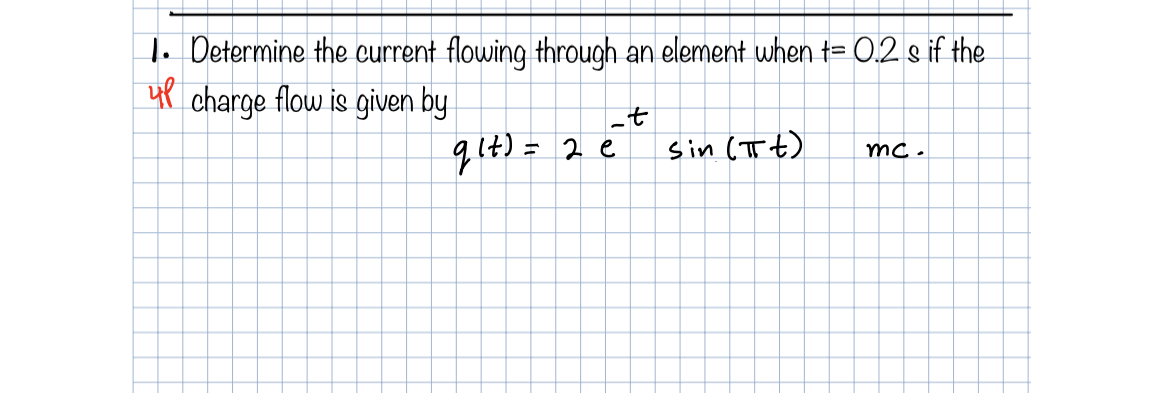 1. Determine the current flowing through an element when t= 0.2 s if the
4P charge flow is given by
q(t) = 2 e^-t sin (πt) mc.